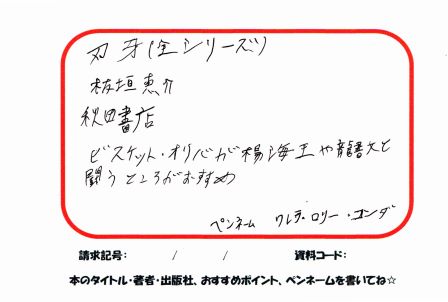 刃牙(全シリーズ)
板垣恵介
秋田書店
ビスケット・オリバが楊海王や龍書文と
闘うところがおすすめ
ペンネーム ワレデ・ロリー・コンダ
請求記号: / / 資料コード:
本のタイトル・著者・出版社、おすすめポイント、ペンネームを書いてね☆